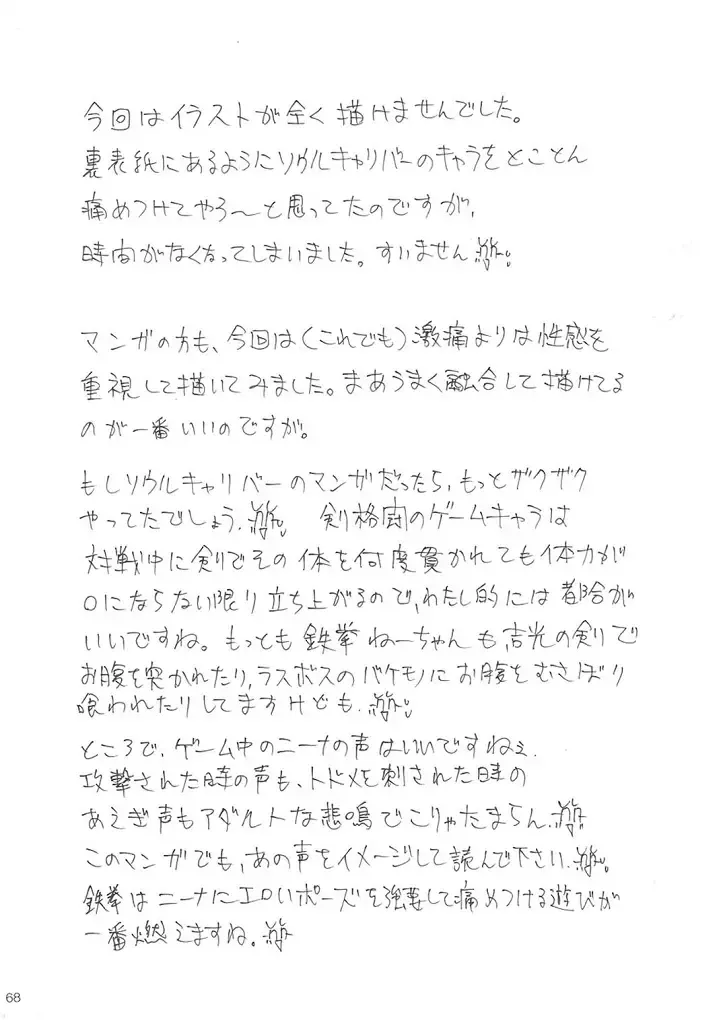 今回はイラストが全く描けませんでした。
裏表紙にあるようにソウルキャリバーのキャラをとことん
痛めつけてやろ〜と思ってたのですが、
時間がなくなってしまいました。すいません
マンガの方も、今回は(これでも)激痛よりは性感を
重視して描いてみました。まあうまく融合して描けてる
のが一番いいのですが。
もしソウルキャリバーのマンガだったら、もっとザクザク
やってたでしょう. 剣格闘のゲームキャラは
対戦中に剣でその体を何度貫かれても体力が
0にならない限り立ち上がるので、わたし的には都合が
いいですね。もっとも鉄拳ねーちゃんも、吉光の剣で
お腹を突かれたり、ラスボスのバケモノにお腹をむさぼり
喰われたりしてますけども.
ところで、ゲーム中のニーナの声はいいですねぇ.
攻撃された時の声も、トドメを刺された時の
あえぎ声もアダルトな悲鳴でこりゃたまらん.
このマンガでも、あの声をイメージして読んで下さい.
鉄拳はニーナにエロいポーズを強要して痛めつける遊びが
一番燃えますね。
68